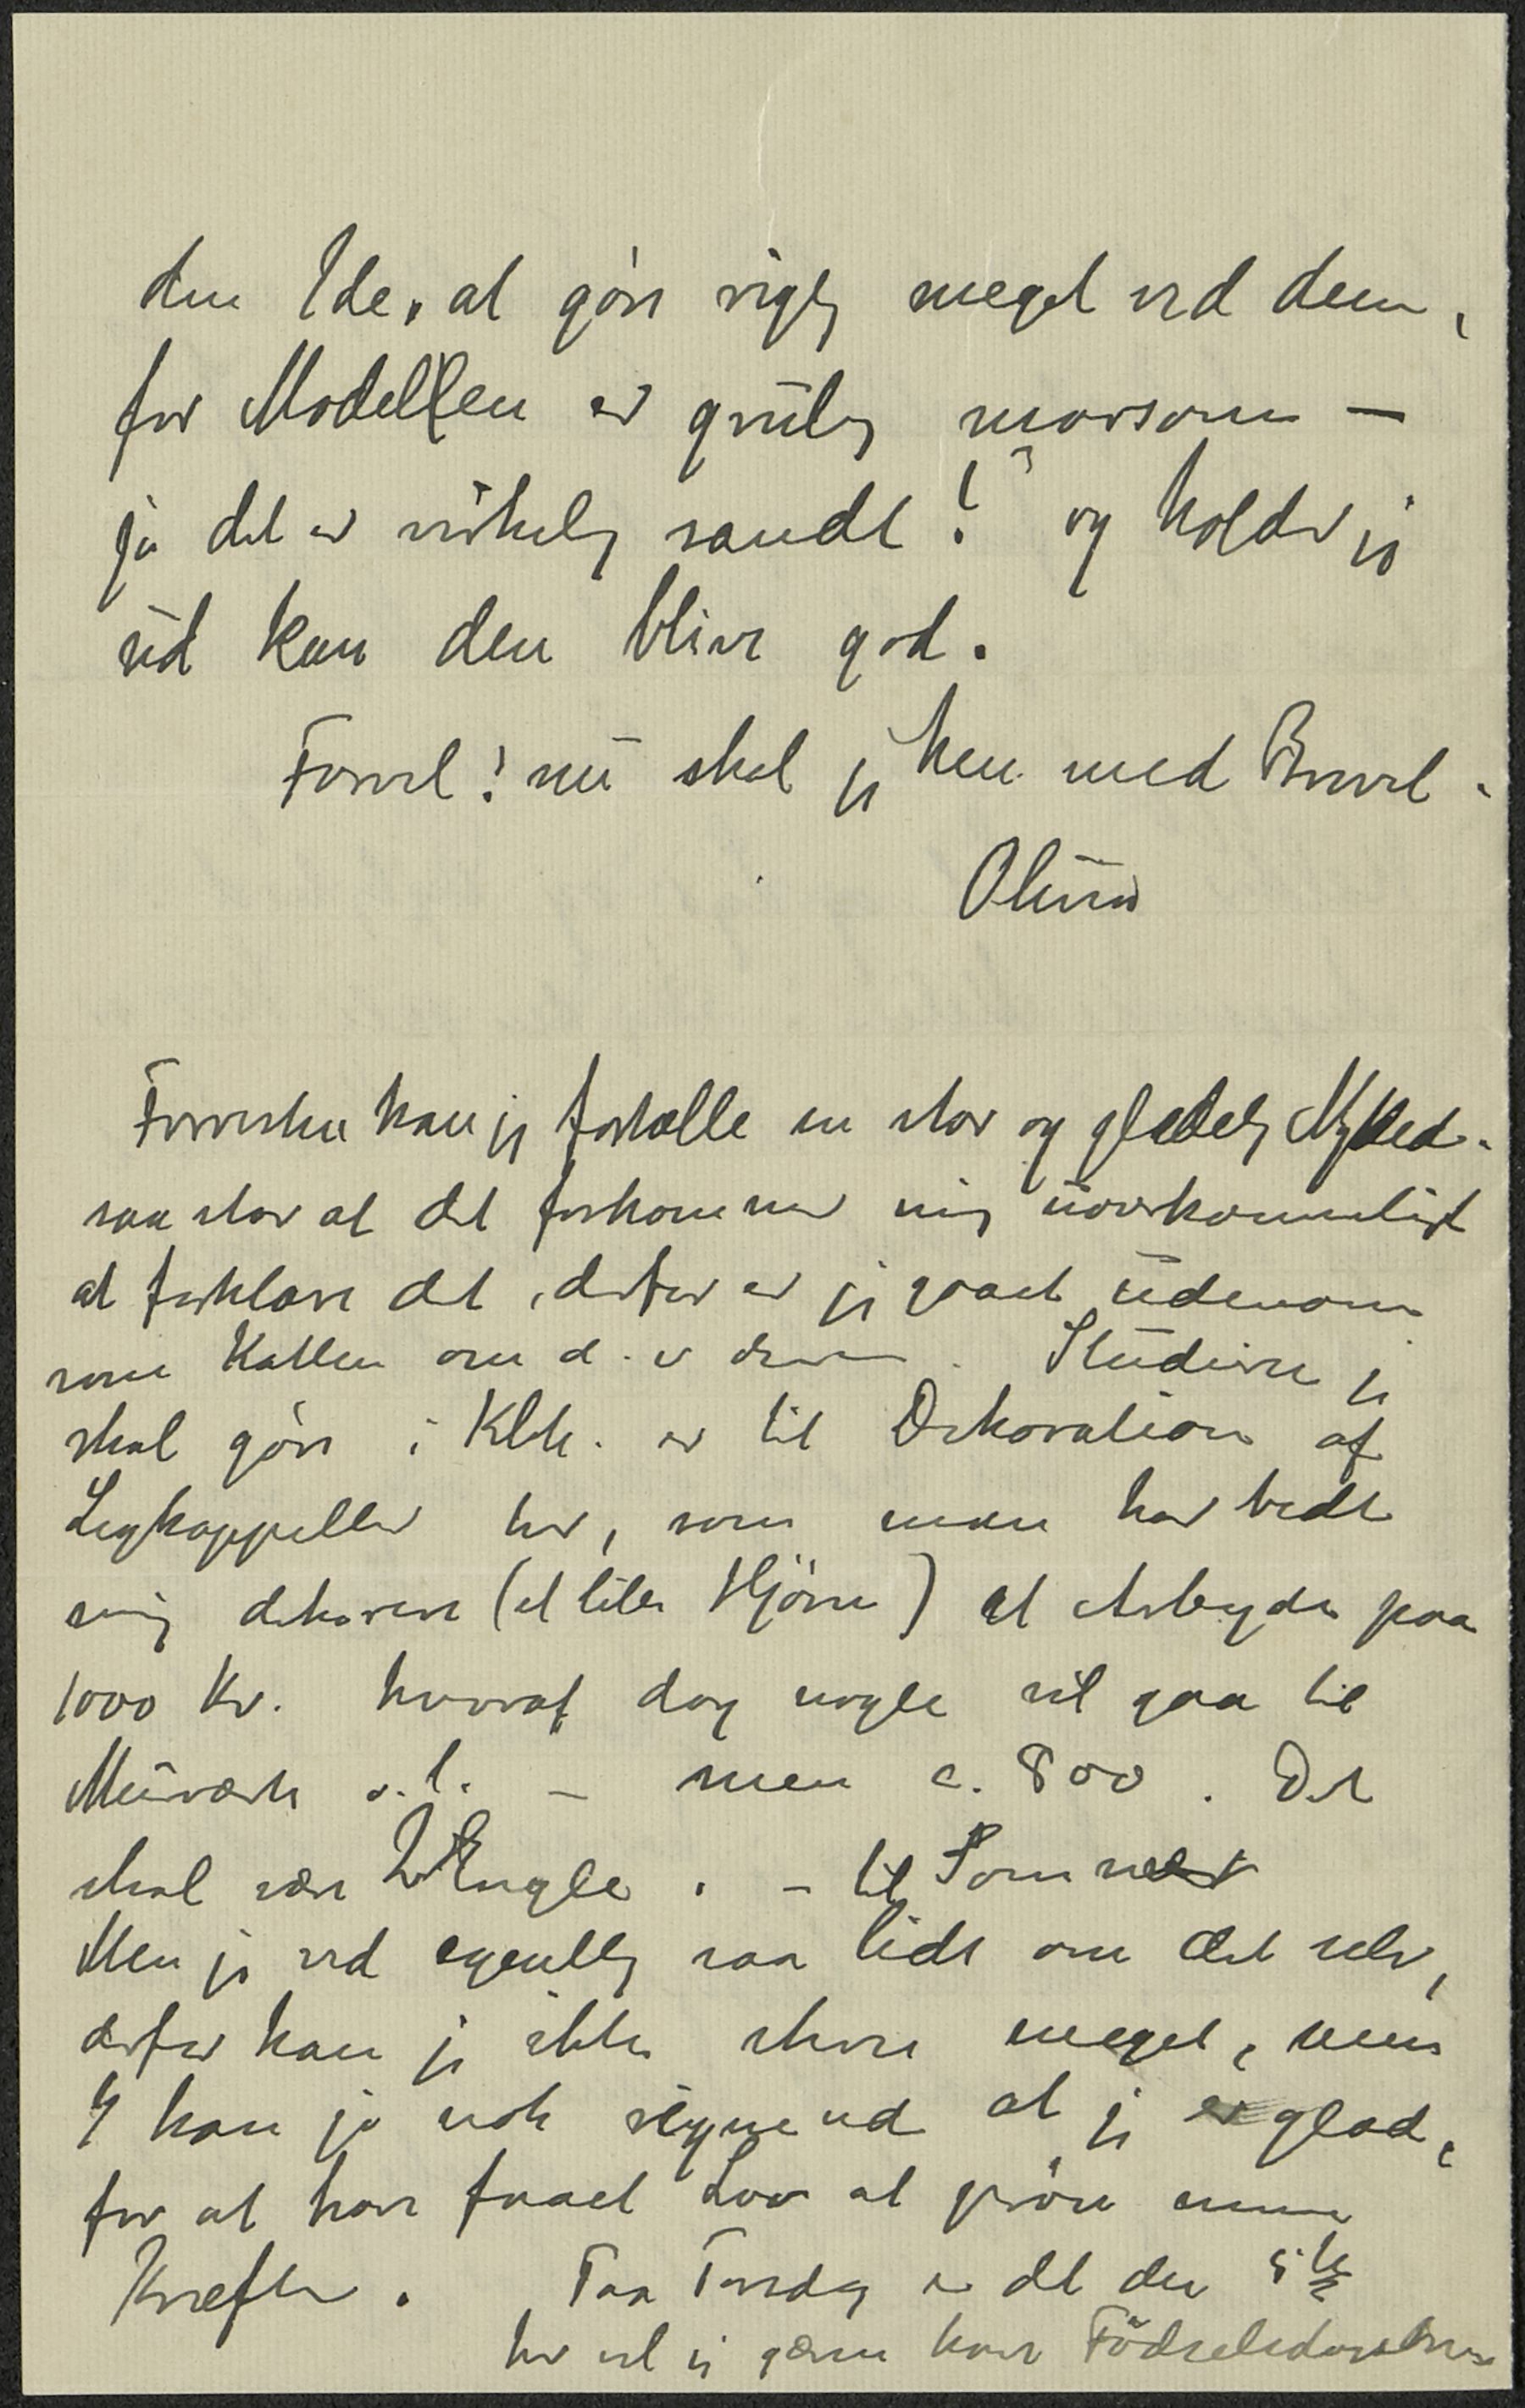 den Ide, at göre rigtig meget ved dem,
for Modellen er grulig morsom —
ja det er virkelig sandt! og holder jeg
ud kan den blive god.
Farvel! nu skal jeg hen med Brevet.
Oluva
Forresten kan jeg fortælle en stor og glædelig Nyhed.
saa stor at det forkommer mig uoverkommeligt
at forklare det, derfor er jeg gaaet udenom
som Katten om d. v Grøden. Studierne jeg
skal göre i Kbh. er til Dekoration af
Ligkappellet her, som man har bedt
mig dekorere (et lille Hjörne) et Arbejde paa
1000 Kr. hvoraf dog nogle vil gaa til
Murværk o.l. — men c. 800. Det
skal være 2 Engle. – til Sommer
Men jeg ved egentlig saa lidt om det selv,
derfor kan jeg ikke skrive meget, men
I kan jo nok regne ud at jeg er glad,
for at have faaet Lov at pröve mine
Kræfter. Paa Torsdag er det den 5te
her vil jeg gærne have Födselsdagsbrev